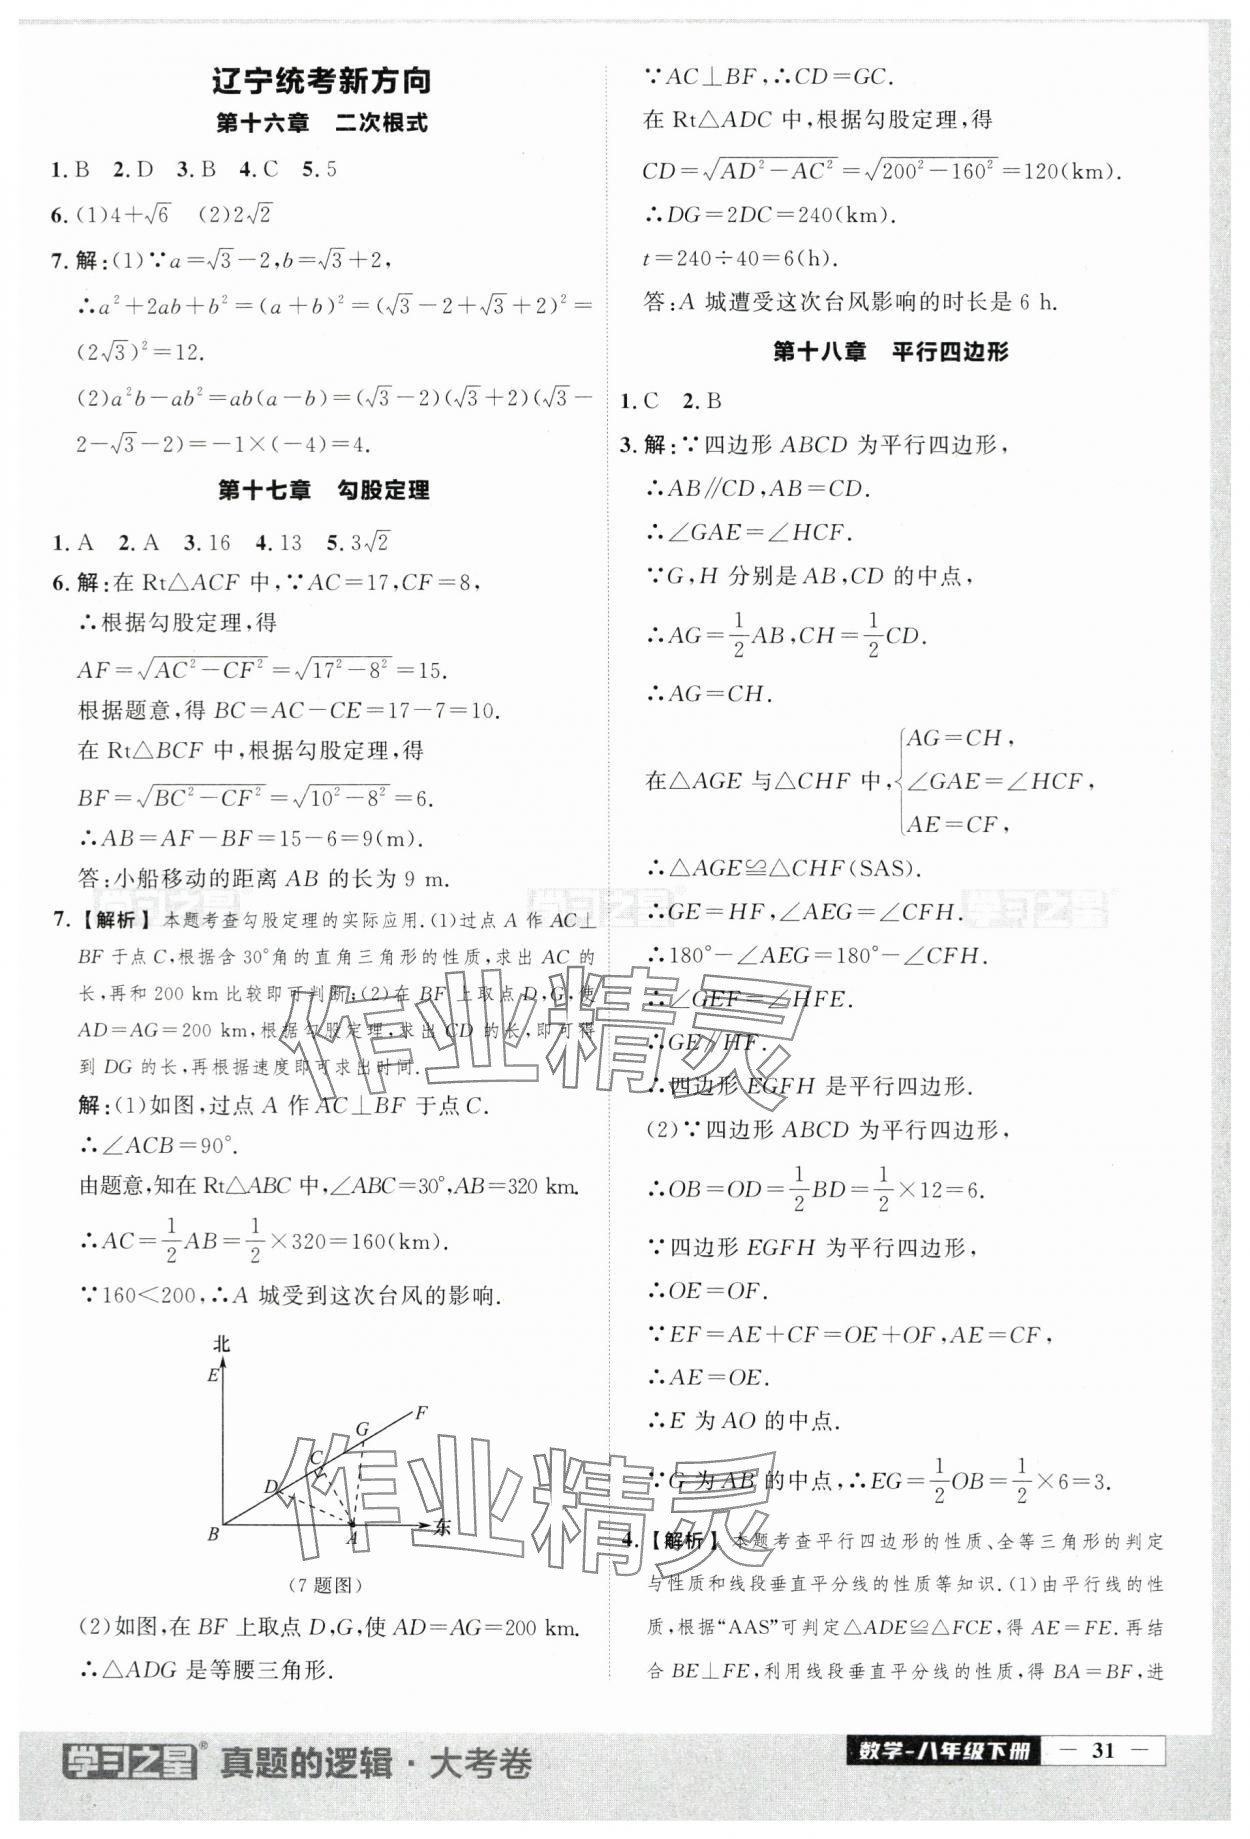 辽宁统考新方向
第十六章　二次根式
1. B　2. D　3. B　4. C　5. 5
6. (1)4+√6　(2)2√2
7. 解:(1)∵a=√3-2,b=√3+2,
∴a²+2ab+b²=(a+b)²=(√3-2+√3+2)²=
(2√3)²=12.
(2)a²b-ab²=ab(a-b)=(√3-2)(√3+2)(√3-
2-√3-2)=-1×(-4)=4.
第十七章　勾股定理
1. A　2. A　3. 16　4. 13　5. 3√2
6. 解:在 Rt△ACF 中,∵AC=17,CF=8,
∴根据勾股定理,得
AF=√(AC²-CF²)=√(17²-8²)=15.
根据题意,得 BC=AC-CE=17-7=10.
在 Rt△BCF 中,根据勾股定理,得
BF=√(BC²-CF²)=√(10²-8²)=6.
∴AB=AF-BF=15-6=9(m).
答:小船移动的距离 AB 的长为 9 m.
7. 【解析】本题考查勾股定理的实际应用.(1)过点 A 作 AC⊥
BF 于点 C,根据含 30°角的直角三角形的性质,求出 AC 的
长,再和 200 km 比较即可判断;(2)在 BF 上取点 D,G,使
AD=AG=200 km,根据勾股定理,求出 CD 的长,即可得
到 DG 的长,再根据速度即可求出时间.
解:(1)如图,过点 A 作 AC⊥BF 于点 C.
∴∠ACB=90°.
由题意,知在 Rt△ABC 中,∠ABC=30°,AB=320 km.
∴AC=1/2AB=1/2×320=160(km).
∵160<200,∴A 城受到这次台风的影响.
北
E
F
G
C
D
B
A
东
(7 题图)
(2)如图,在 BF 上取点 D,G,使 AD=AG=200 km.
∴△ADG 是等腰三角形.
∵AC⊥BF,∴CD=GC.
在 Rt△ADC 中,根据勾股定理,得
CD=√(AD²-AC²)=√(200²-160²)=120(km).
∴DG=2DC=240(km).
t=240÷40=6(h).
答:A 城遭受这次台风影响的时长是 6 h.
第十八章　平行四边形
1. C　2. B
3. 解:∵四边形 ABCD 为平行四边形,
∴AB∥CD,AB=CD.
∴∠GAE=∠HCF.
∵G,H 分别是 AB,CD 的中点,
∴AG=1/2AB,CH=1/2CD.
∴AG=CH.
在△AGE 与△CHF 中,{AG=CH,
∠GAE=∠HCF,
AE=CF,
∴△AGE≌△CHF(SAS).
∴GE=HF,∠AEG=∠CFH.
∴180°-∠AEG=180°-∠CFH.
∴∠GEF=∠HFE.
∴GE∥HF.
∴四边形 EGFH 是平行四边形.
(2)∵四边形 ABCD 为平行四边形,
∴OB=OD=1/2BD=1/2×12=6.
∵四边形 EGFH 为平行四边形,
∴OE=OF.
∵EF=AE+CF=OE+OF,AE=CF,
∴AE=OE.
∴E 为 AO 的中点.
∵G 为 AB 的中点,∴EG=1/2OB=1/2×6=3.
4. 【解析】本题考查平行四边形的性质、全等三角形的判定
与性质和线段垂直平分线的性质等知识.(1)由平行线的性
质,根据“AAS”可判定△ADE≌△FCE,得 AE=FE.再结
合 BE⊥FE,利用线段垂直平分线的性质,得 BA=BF,进
学习之星® 真题的逻辑·大考卷
数学-八年级下册 — 31 —
学习之星®
学习之星®
学习之星®
作业精灵
作业精灵